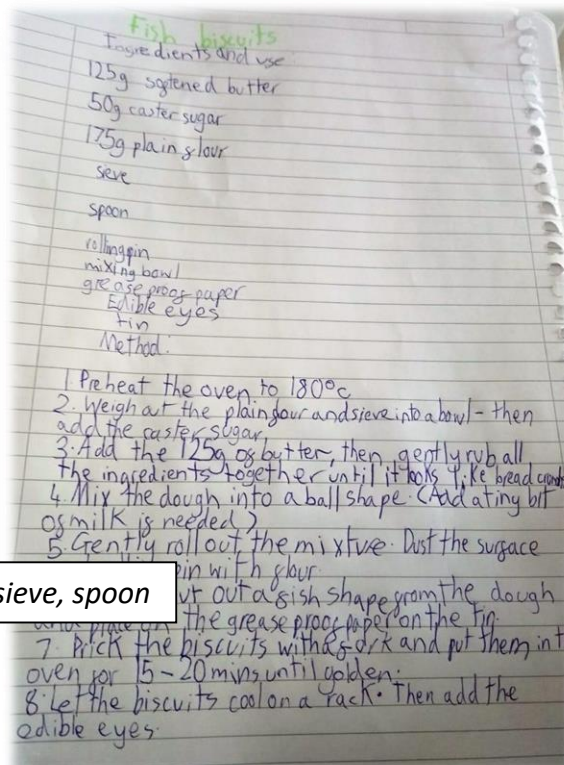 Fish biscuits
Ingredients and use
125g softened butter
50g caster sugar
175g plain flour
seve
spoon
rolling pin
mixing bowl
grease proof paper
Edible eyes
tin
Method:
1. Preheat the oven to 180°c
2. Weigh out the plain flour and sieve into a bowl - then
add the caster sugar
3. Add the 125g of butter, then gently rub all
the ingredients together until it looks like bread crumbs
4. Mix the dough into a ball shape. (Add a tiny bit
of milk if needed)
5. Gently roll out the mixture. Dust the surface
pin with flour.
sieve, spoon
ut out a fish shape from the dough
and place on the grease proof paper on the tin.
7. Prick the biscuits with a fork and put them int
oven for 15-20 mins until golden.
8. Let the biscuits cool on a rack. Then add the
edible eyes.